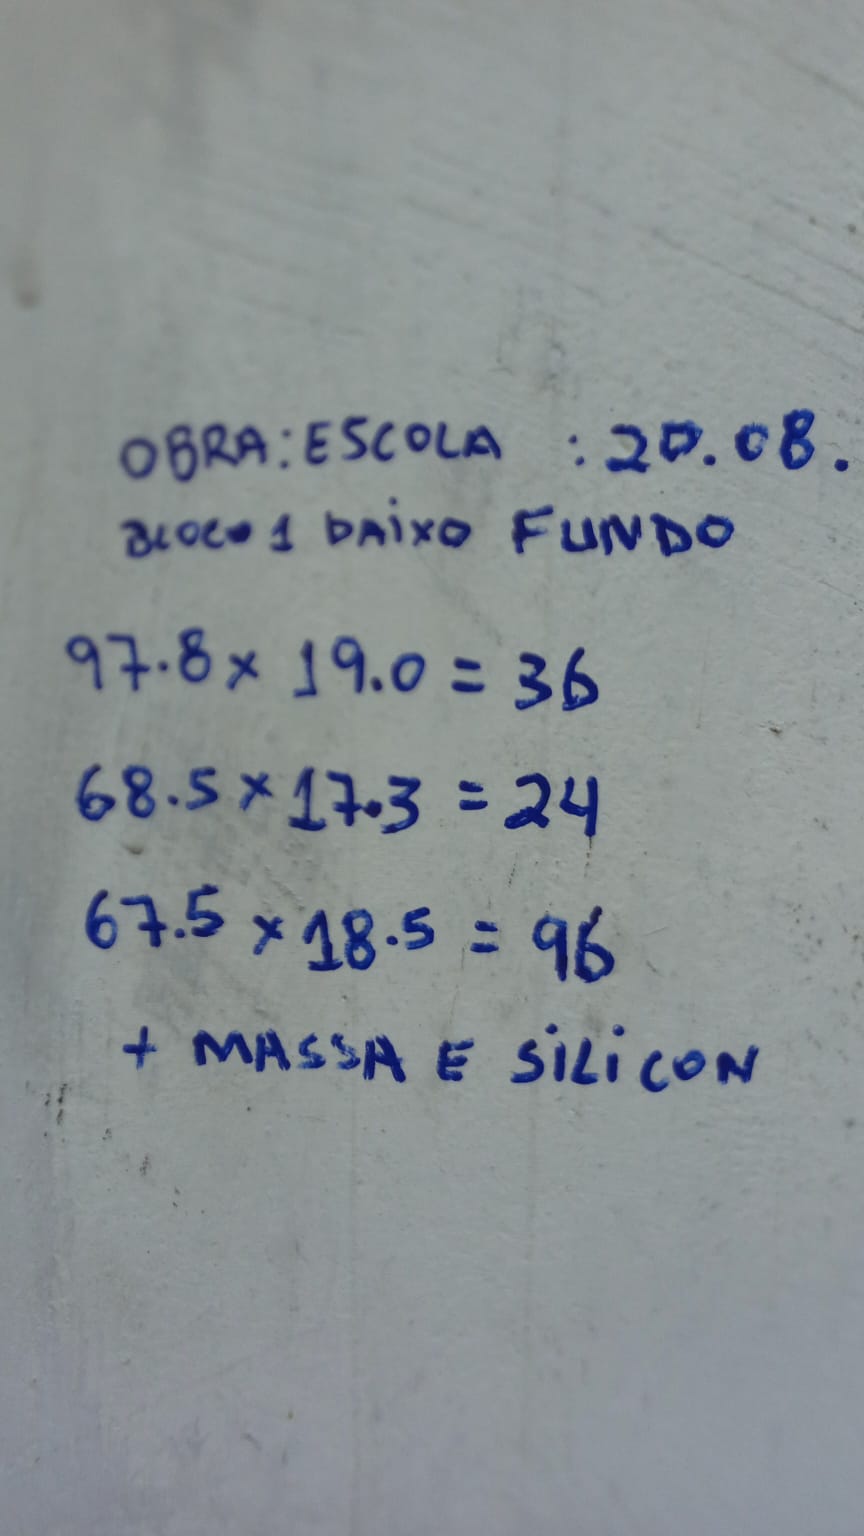 OBRA: ESCOLA : 20.08.
BLOCO 1 BAIXO FUNDO
97.8 x 19.0 = 36
68.5 x 17.3 = 24
67.5 x 18.5 = 96
+ MASSA E SILICON